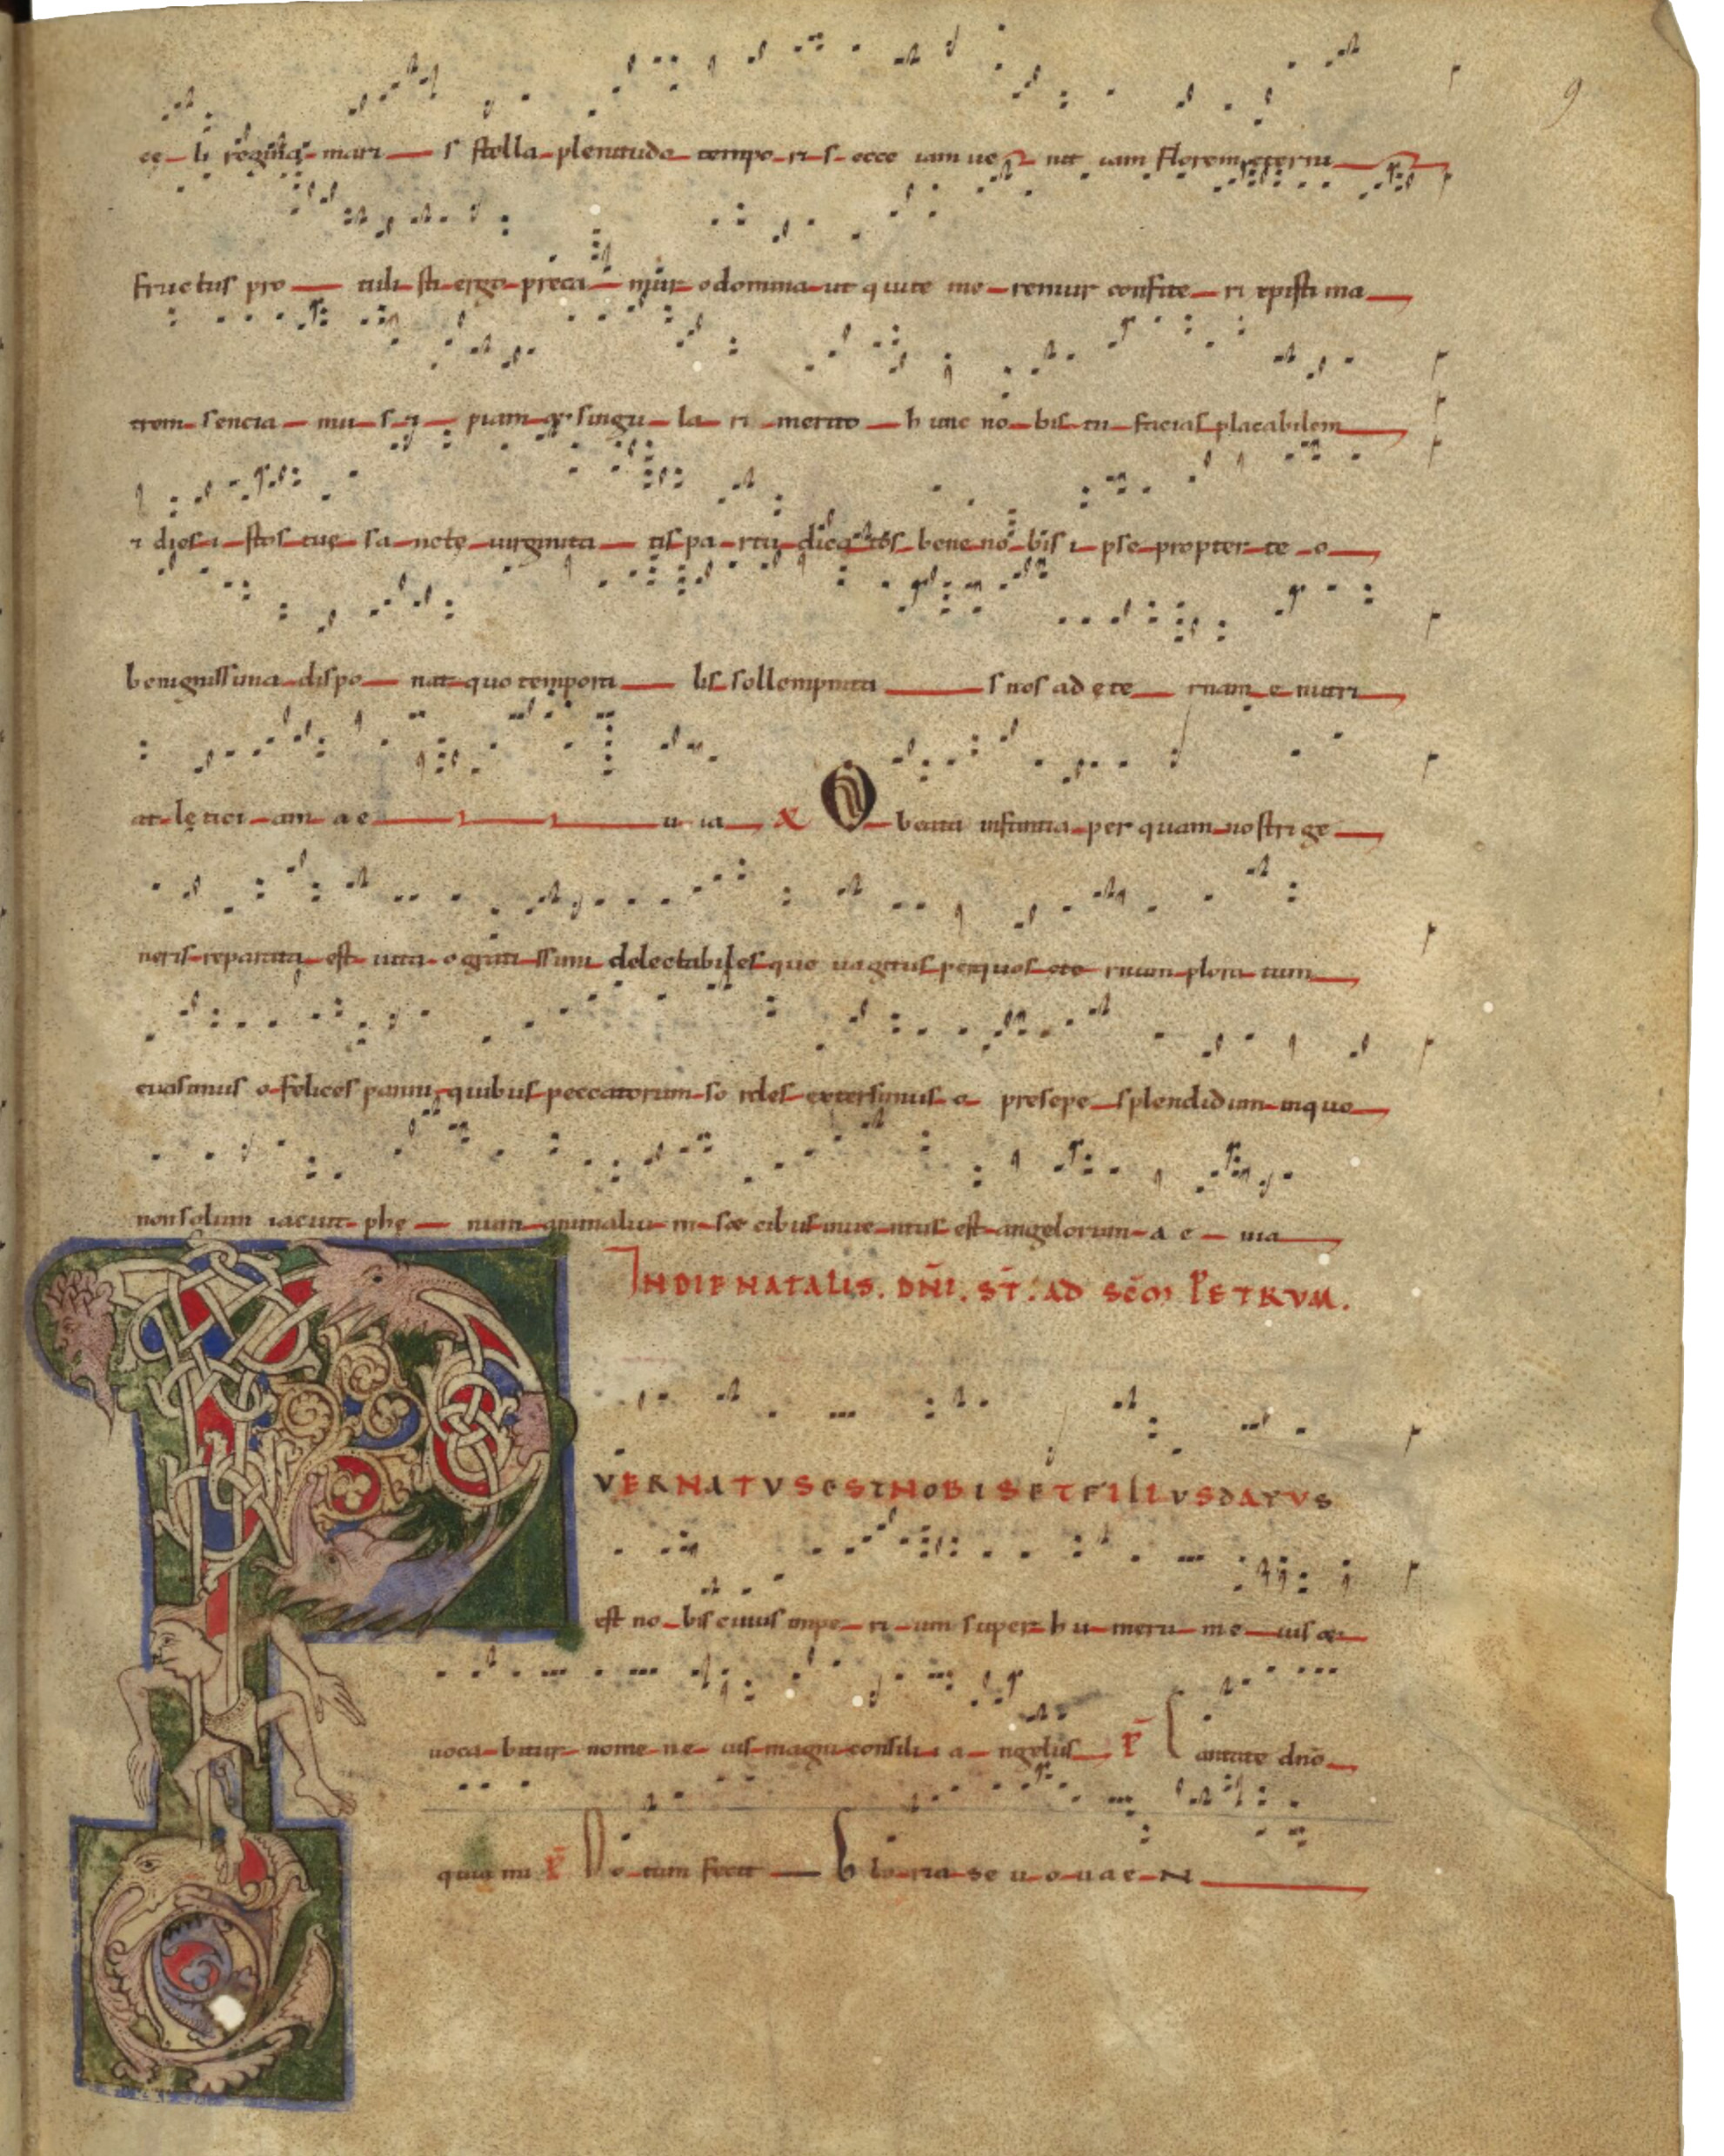 9
cę li regina mari s stella plenitudo tempo ri s ecce iam ue nit iam florem eterni
fructus pro tuli sti ergo preca mur o domina ut qui te me remur confite ri xpisti ma
trem sencia mu s piam singu la ri merito hunc no bis tu facias placabilem
dies i stos tuę sa nctę uirginita tis pa rtu dica tos bene no bis i pse propter te o
benignissima dispo nat quo tempora lis sollempnita s nos ad ęte rnam e mitti
at lętici am a e u ia O beata infantia per quam nostri ge
neris reparata est uita o grati ssimi delectabilesque uagitus per quos ete rnum plora tum
euasimus o felices panni quibus peccatorum so rdes extersimus o presepe splendidum in quo
non solum iacuit phe num animaliu m sꝫ cibus inue ntus est angelorum a e uia
IN DIE NATALIS. DN̄I. ST̄. AD SC̄M PETRVM.
PVER NATVS EST NOBIS ET FILIVS DATVS
est no bis cuius impe ri um super hu meru m e ius et
uoca bitur nome n e ius magni consili i a ngelus P̄ Cantate dn̄o
quia mi V̄ No tum fecit Glo ria se u o u a e N